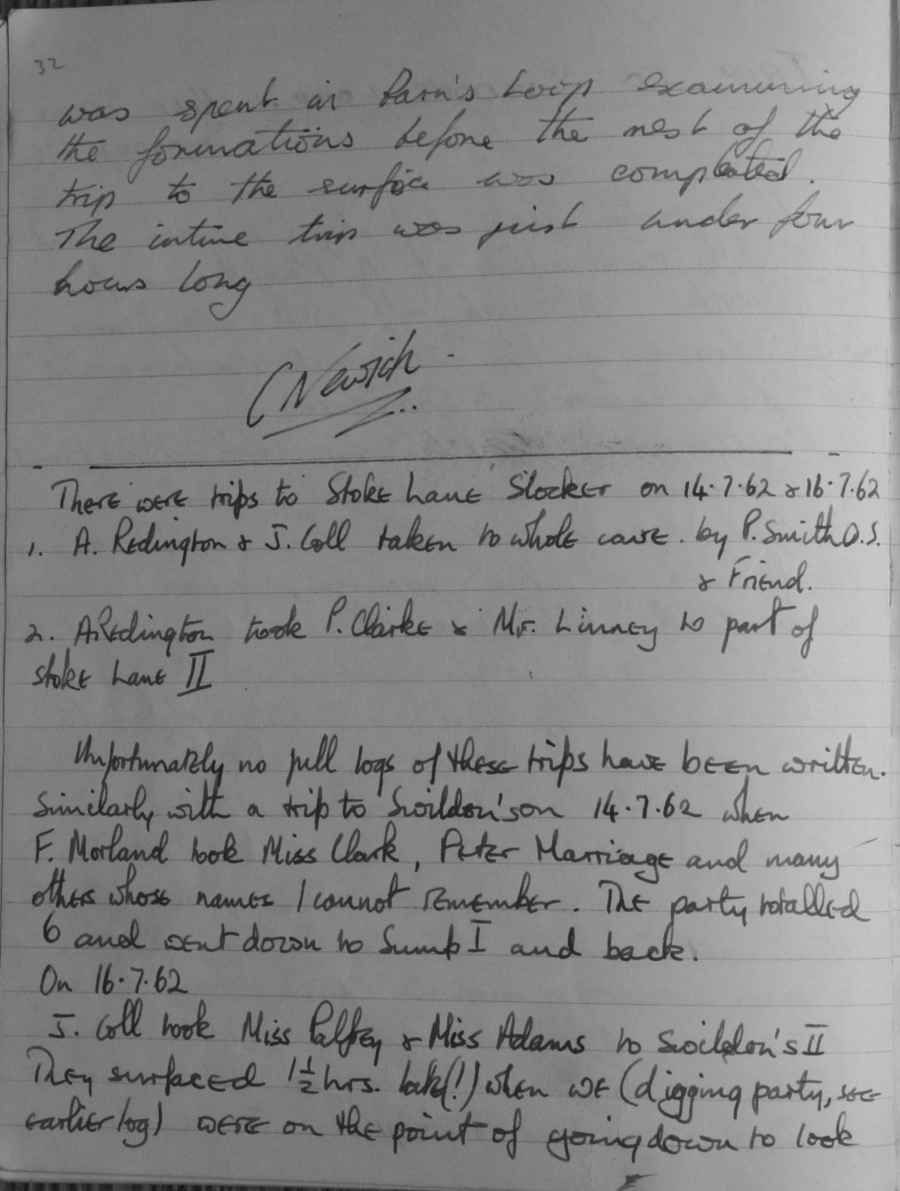 32
was spent in Barn's Loop examining
the formations before the rest of the
trip to the surface was completed.
The intire trip was just under four
hours long
C Newich
There were trips to Stoke Lane Slocker on 14.7.62 & 16.7.62
1. A. Redington & J. Coll taken to whole cave. by P. Smith O.S.
& Friend.
2. A. Redington took P. Clarke & Mr. Linney to part of
Stoke Lane II
Unfortunately no full logs of these trips have been written.
Similarly with a trip to Swildon's on 14.7.62 when
F. Morland took Miss Clark, Peter Marriage and many
others whose names I cannot remember. The party totalled
6 and went down to Sump I and back.
On 16.7.62
J. Coll took Miss Palfrey & Miss Adams to Swildon's II
They surfaced 1½ hrs. late(!) when we (digging party, see
earlier log) were on the point of going down to look